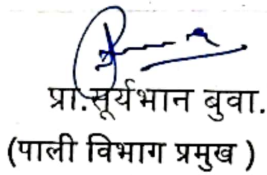 प्रा.सूर्यभान बुवा.
(पाली विभाग प्रमुख )